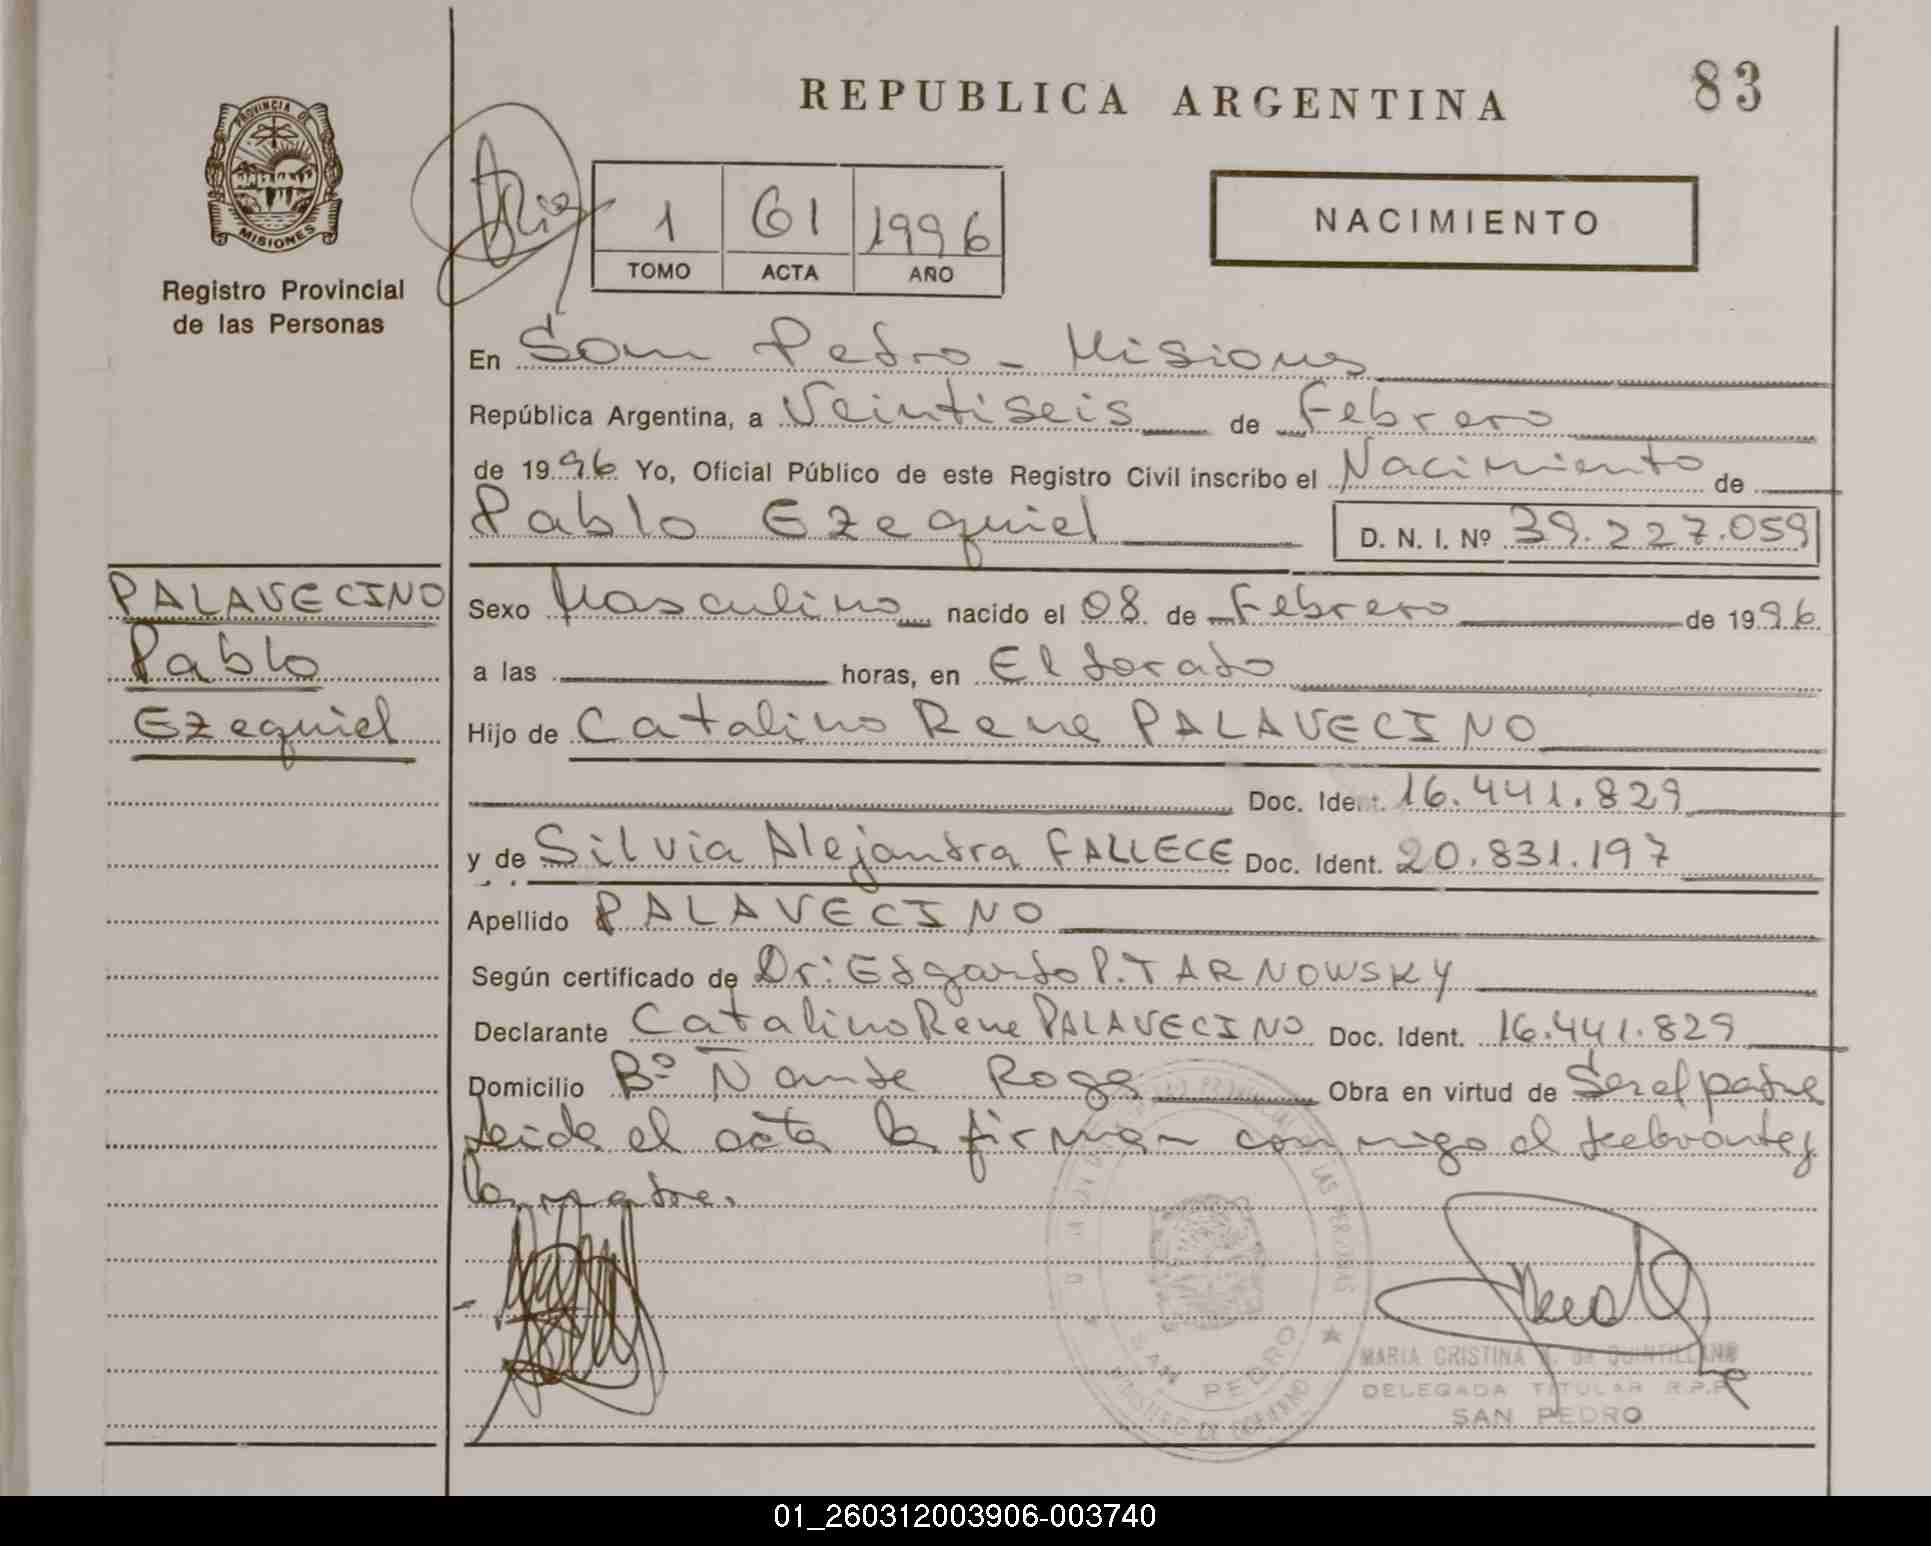 REPUBLICA ARGENTINA
83
PROVINCIA DE
MISIONES
Registro Provincial
de las Personas
1 61 1996
TOMO ACTA AÑO
NACIMIENTO
En San Pedro - Misiones
República Argentina, a Veintiseis de Febrero
de 1996 Yo, Oficial Público de este Registro Civil inscribo el Nacimiento de
Pablo Ezequiel D. N. I. Nº 39.227.059
PALAVECINO
Pablo
Ezequiel
Sexo Masculino nacido el 08 de Febrero de 1996
a las horas, en Eldorado
Hijo de Catalino Rene PALAVECINO
Doc. Ident. 16.441.829
y de Silvia Alejandra FALLECE Doc. Ident. 20.831.197
Apellido PALAVECINO
Según certificado de Dr: Edgardo P. TARNOWSKY
Declarante Catalino Rene PALAVECINO Doc. Ident. 16.441.829
Domicilio Bº Ñande Roga Obra en virtud de Ser el padre
Leida el acta la firman conmigo el declarante y
la madre.
SAN PEDRO
MINISTERIO DE GOBIERNO
MARIA CRISTINA de QUINTILLANA
DELEGADA TITULAR R.P.P.
SAN PEDRO
01_260312003906-003740